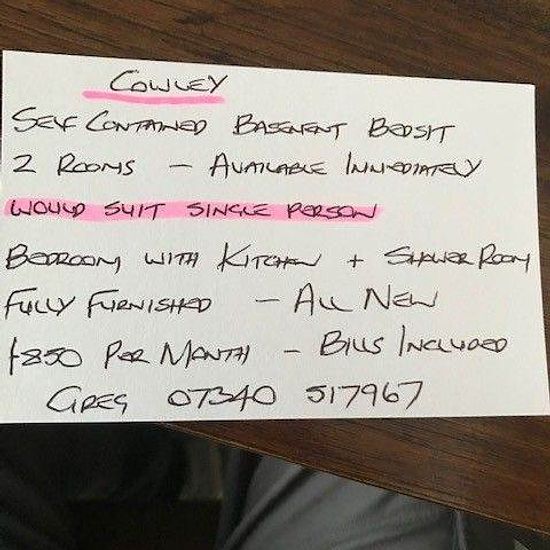 COWLEY
SELF CONTAINED BASEMENT BEDSIT
2 ROOMS – AVAILABLE IMMEDIATELY
WOULD SUIT SINGLE PERSON
BEDROOM WITH KITCHEN + SHOWER ROOM
FULLY FURNISHED – ALL NEW
£850 PER MONTH – BILLS INCLUDED
GREG 07340 517967